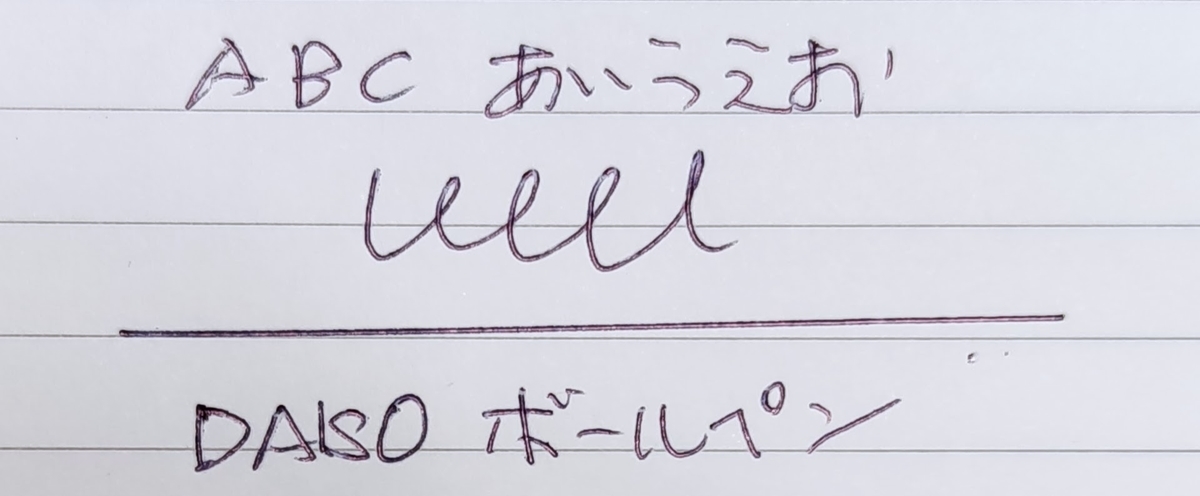 ABC あいうえお
DAISO ボールペン